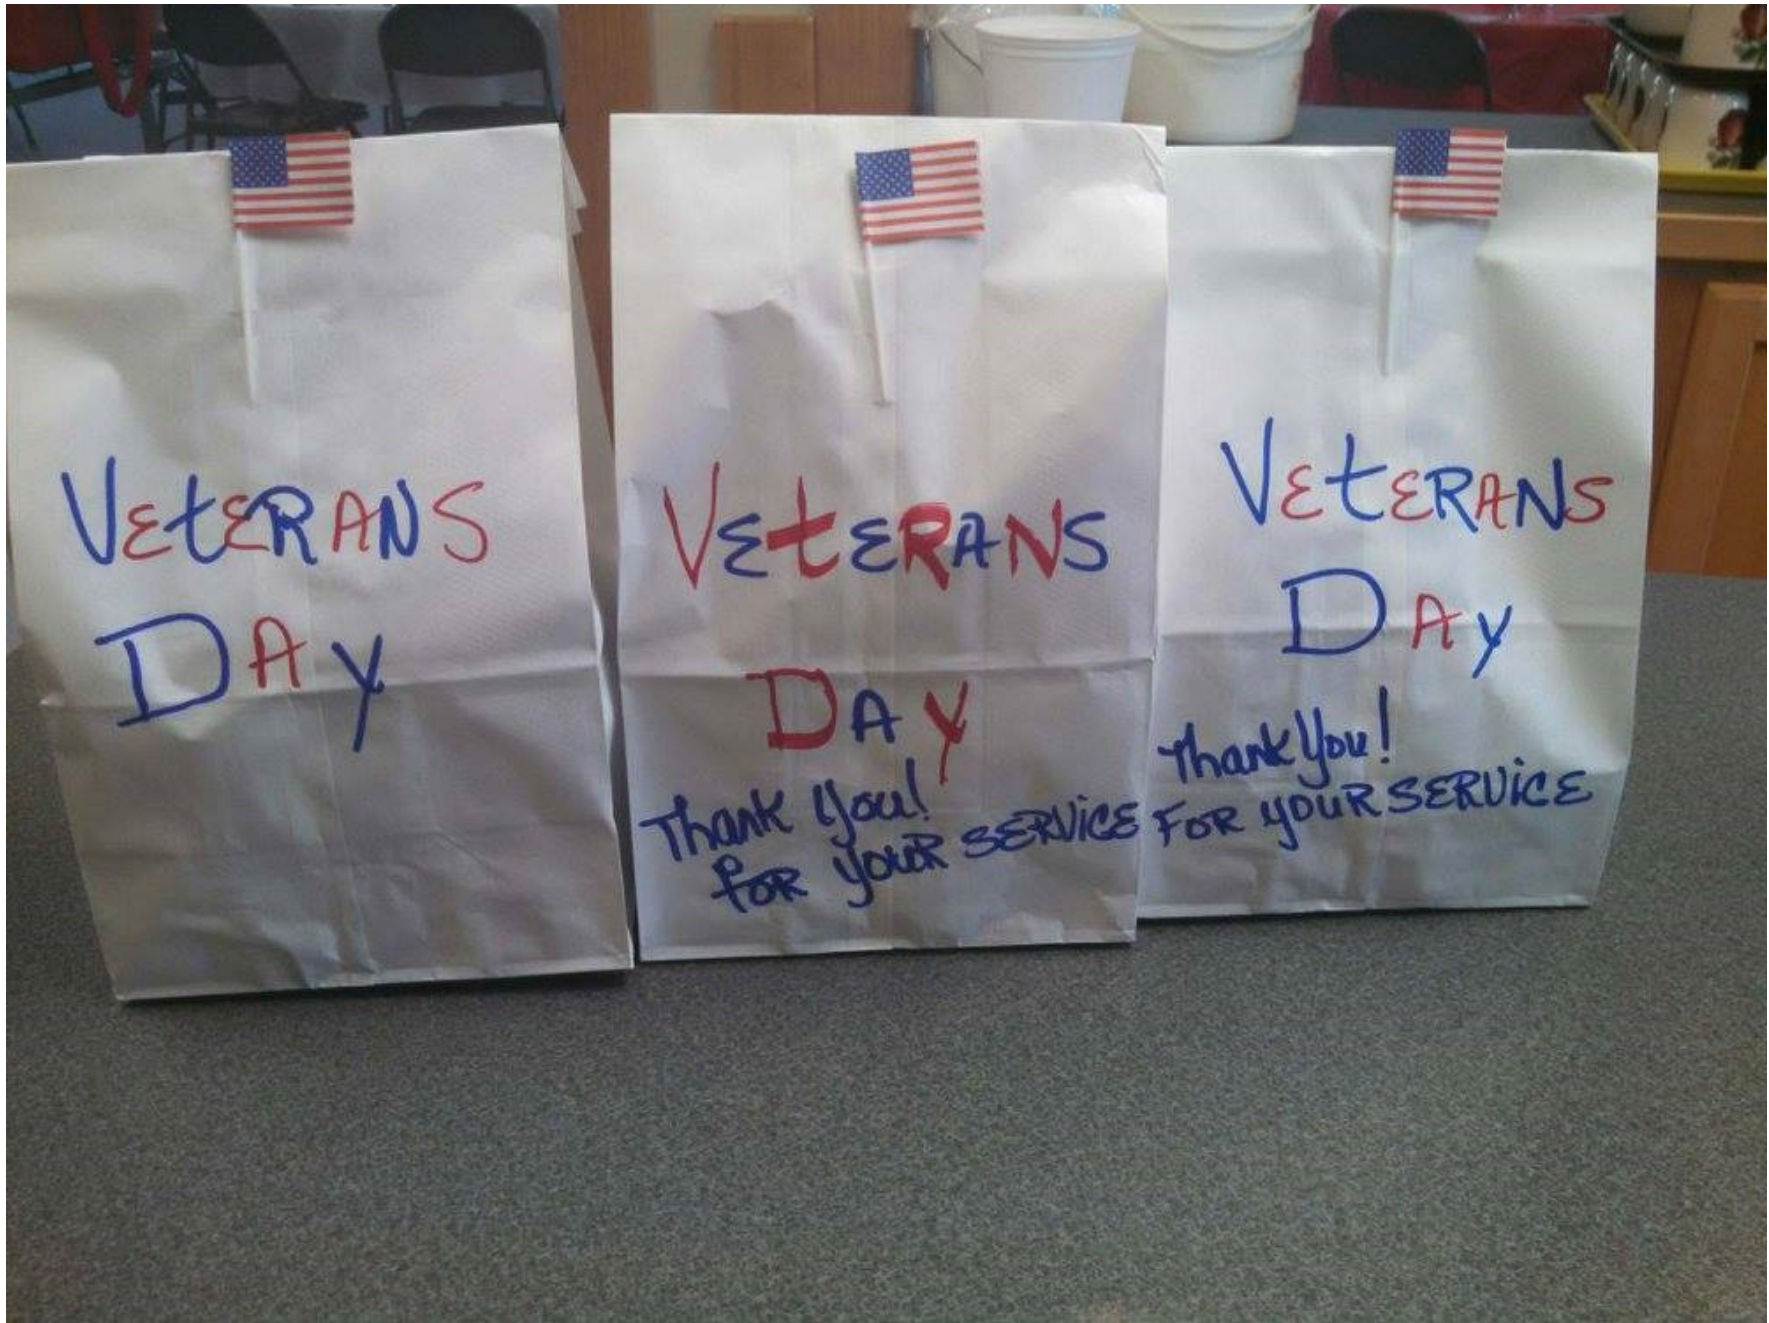 VEtERANS
DAy
VEtERANS
DAy
Thank you!
for your SERViCE
VEtERANS
DAy
Thank You!
FOR yOUR SERViCE